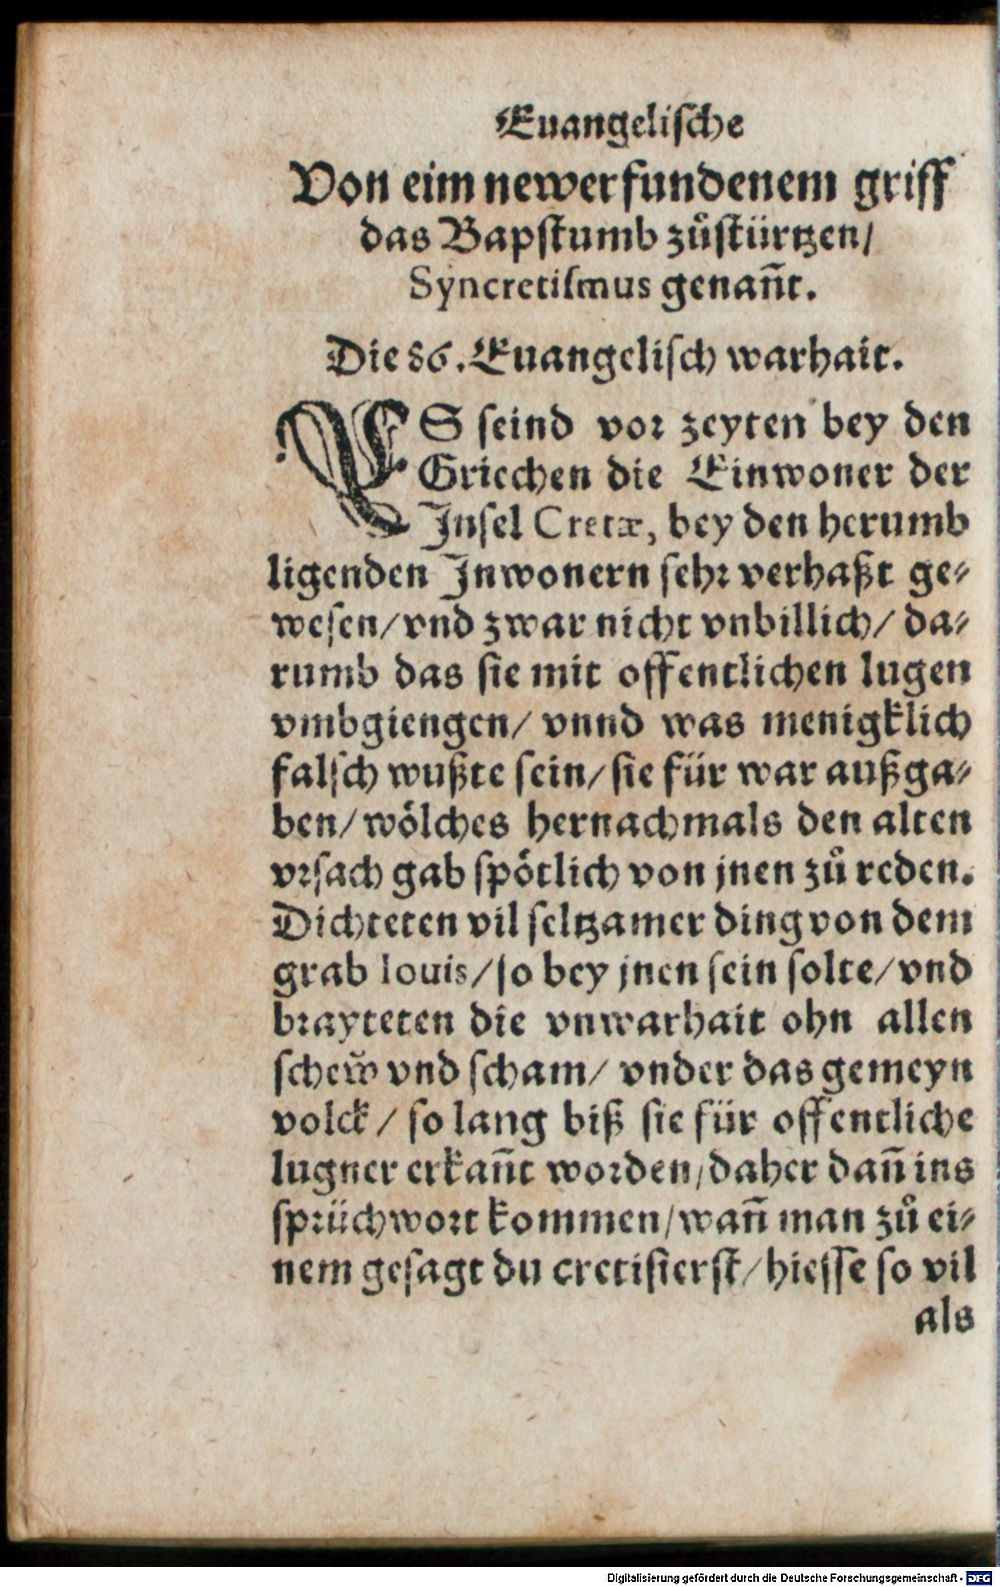 Euangelische
Von eim newerfundenem griff
das Bapstumb zůstürtzen/
Syncretismus genañt.
Die 86. Euangelisch warhait.
ES seind vor zeyten bey den
Griechen die Einwoner der
Insel Cretæ, bey den herumb
ligenden Inwonern sehr verhaßt ge-
wesen/vnd zwar nicht vnbillich/ da-
rumb das sie mit offentlichen lugen
vmbgiengen/ vnnd was menigklich
falsch wußte sein/ sie für war außga-
ben/ wölches hernachmals den alten
vrsach gab spötlich von jnen zů reden.
Dichteten vil seltzamer ding von dem
grab Iouis/ so bey jnen sein solte/ vnd
brayteten die vnwarhait ohn allen
schew̌ vnd scham/ vnder das gemeyn
volck/ so lang biß sie für offentliche
lugner erkañt worden/ daher dañ ins
sprüchwort kommen/ wañ man zů ei-
nem gesagt du cretisierst/ hiesse so vil
als
Digitalisierung gefördert durch die Deutsche Forschungsgemeinschaft - DFG